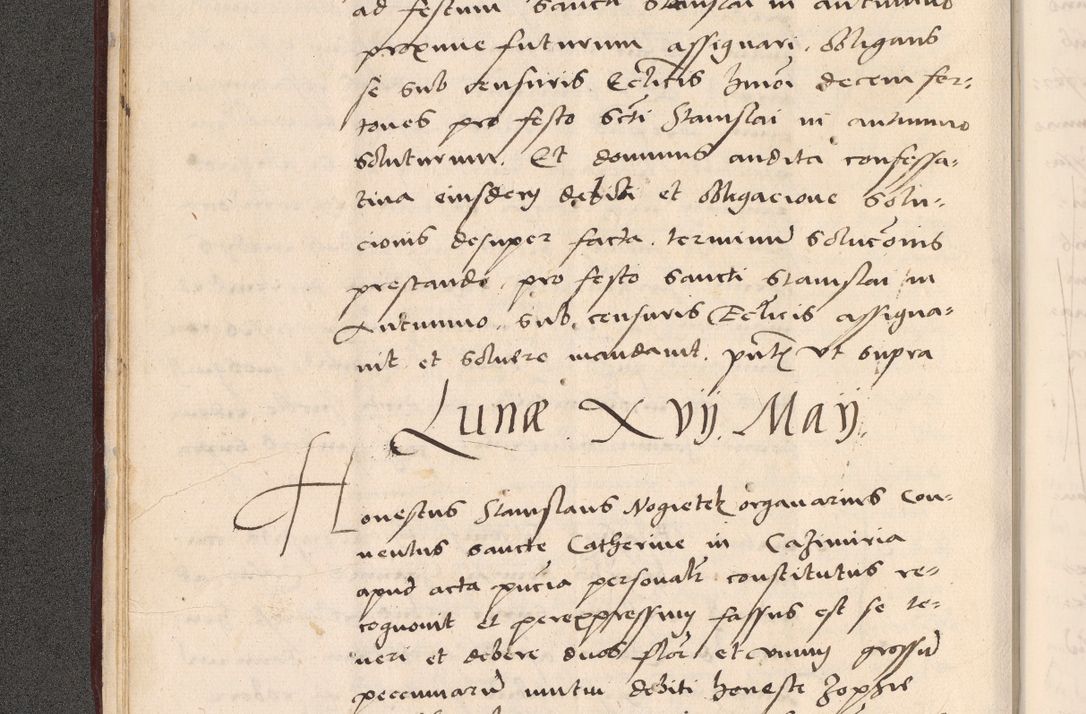 ad festum Sancti Stanislai in autumno
proxime futurum assignari, obligans
se sub censuris Ecclicis hmoi decem fer-
tones pro festo Scti Stanislai in autumno
soluturum. Et dominus audita confessa-
tina eiusdem debiti et obligacione solu-
cionis desuper facta, terminum soluconis
prestande, pro festo Sancti Stanislai in
Autumno, sub censuris Ecclicis assigna-
uit et soluere mandauit, pntt ut supra
Lunæ Xvij Maij
Honestus Stanislaus Nogietek organarius Con-
uentus sancte Catherine in Cazimiria
apud acta pncia personalr constitutus re-
cognouit et per expressum fassus est se te-
neri et debere duos flor et vnum grossum
pecuniarum mutui debiti honeste Zophie